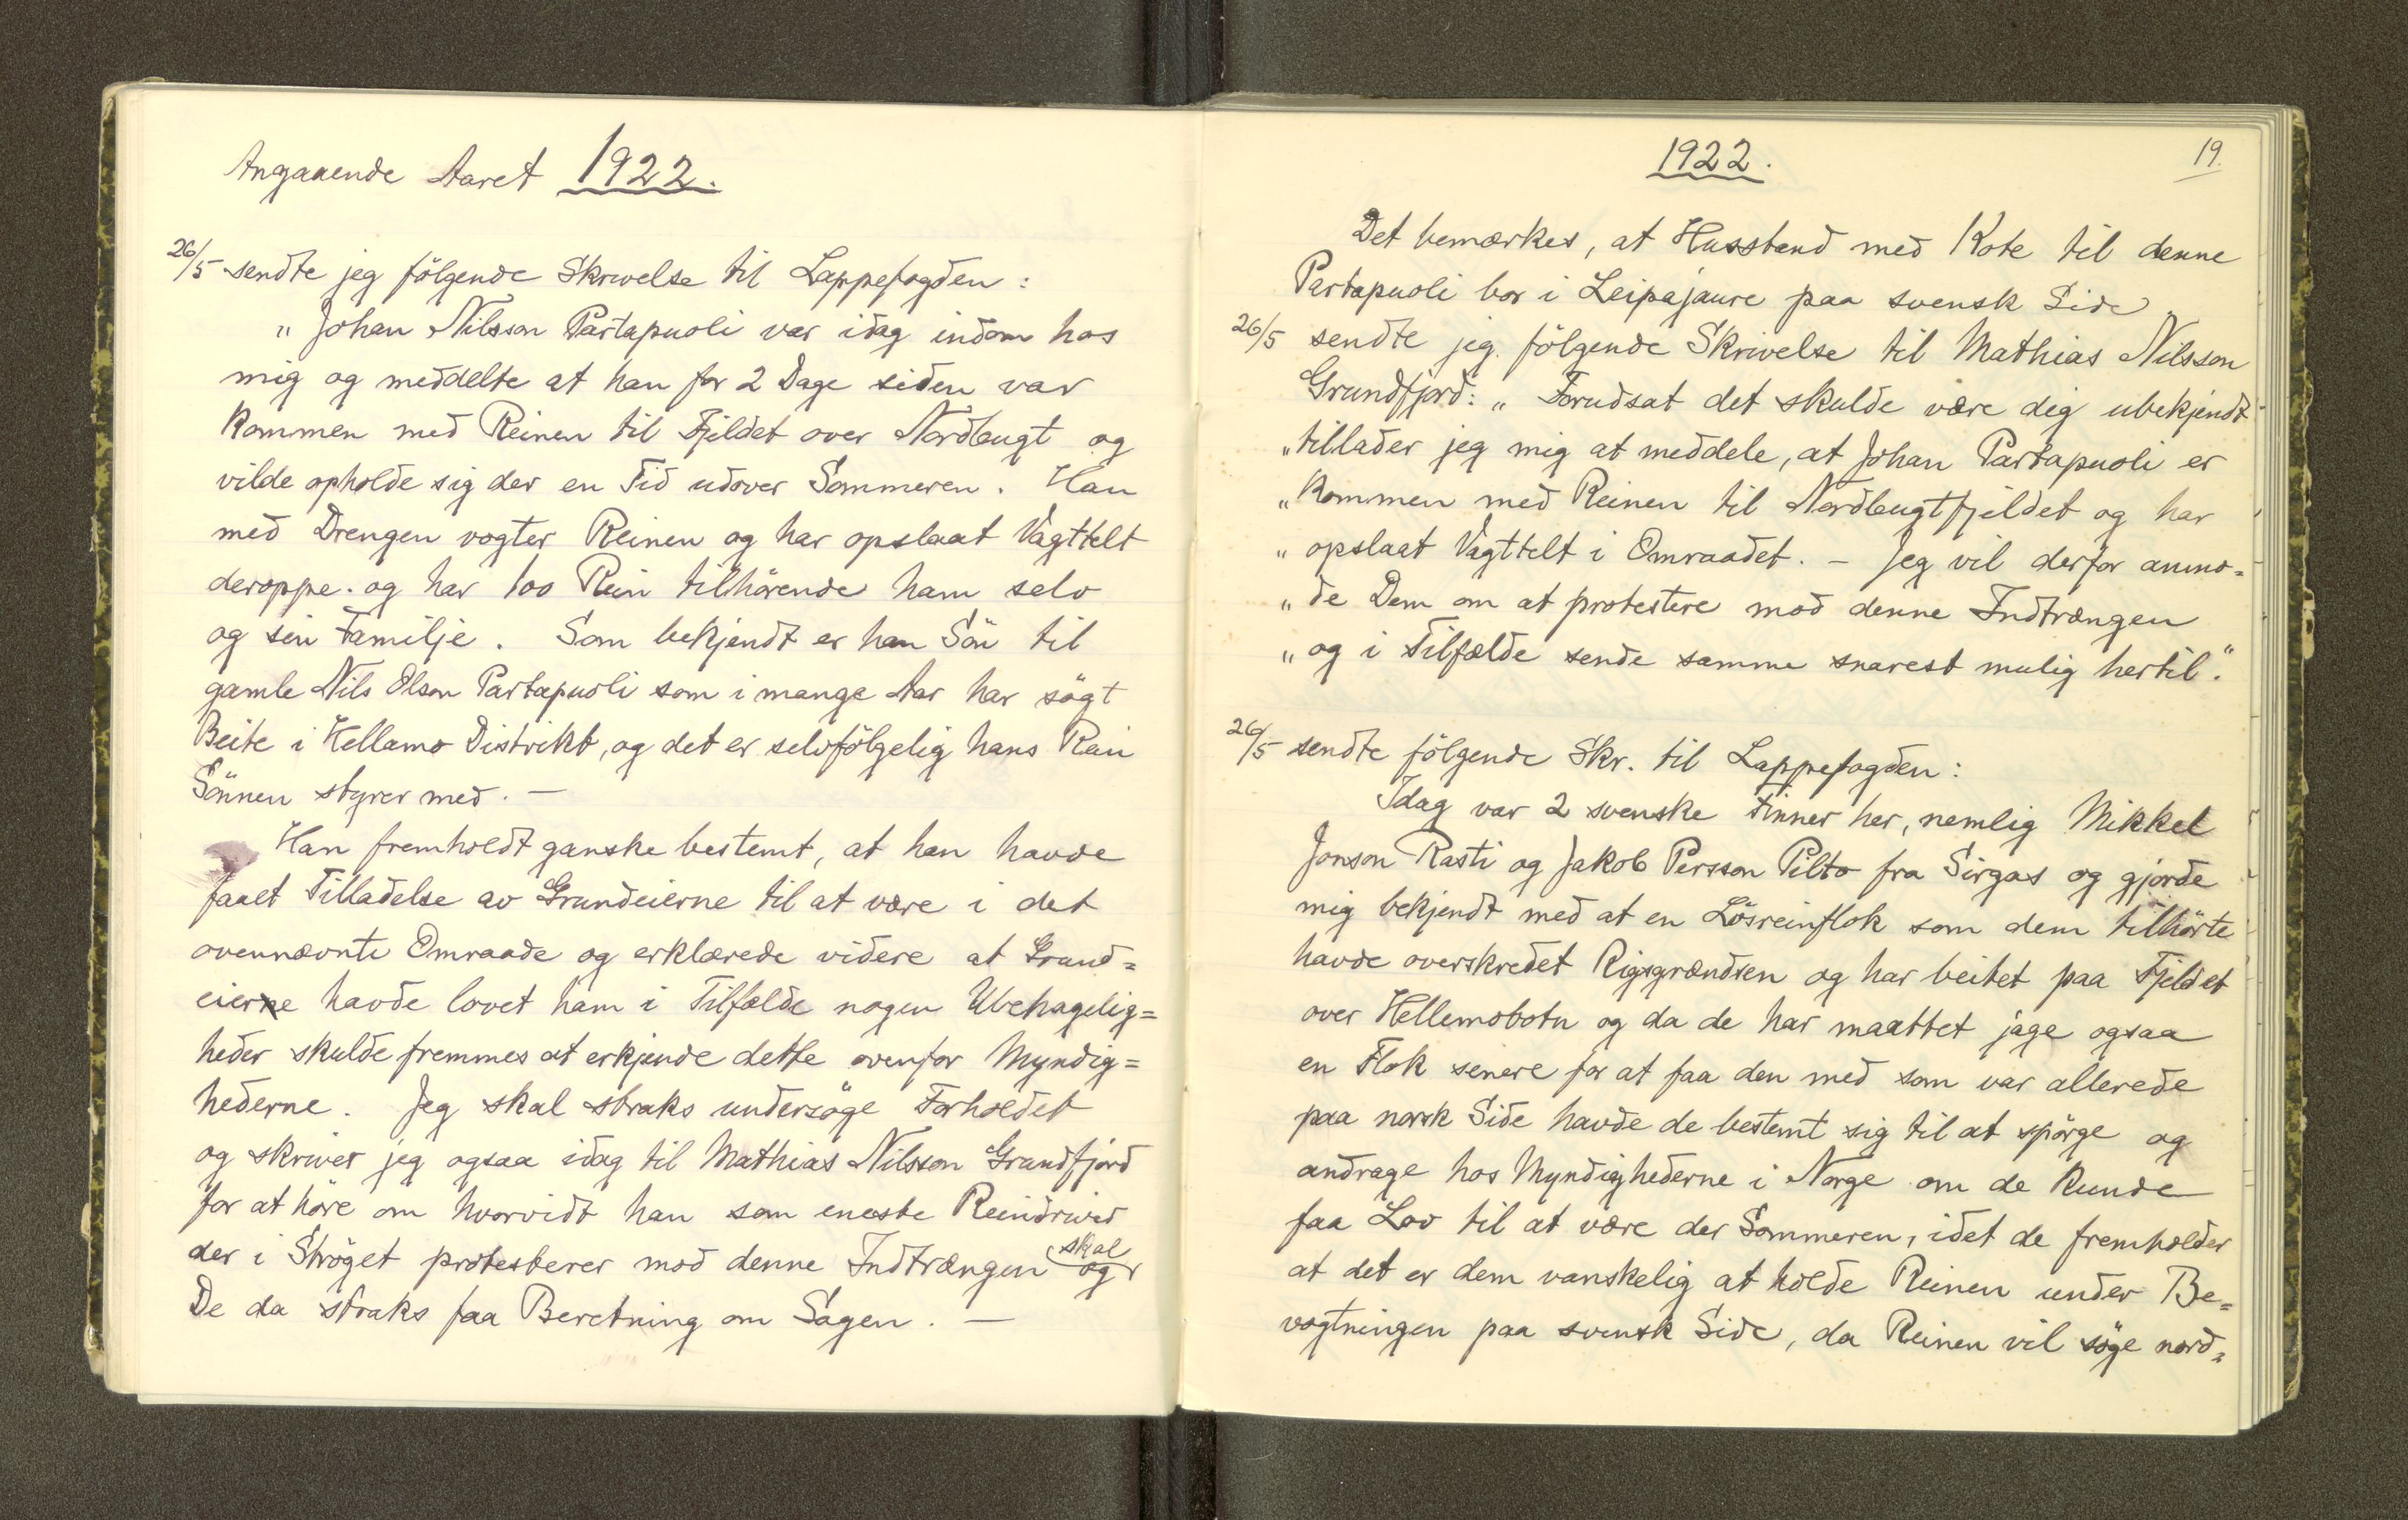 Angaaende Aaret 1922.
26/5 sendte jeg følgende Skrivelse til Lappefogden:
„Johan Nilsson Partapuoli var idag indom hos
mig og meddelte at han for 2 Dage siden var
kommen med Reinen til Fjeldet over Nordbugt og
vilde opholde sig der en Tid udover Sommeren. Han
med Drengen vogter Reinen og har opslaat Vagttelt
deroppe. og har 100 Rein tilhörende ham selv
og sin Familje. Som bekjendt er han Sön til
gamle Nils Olson Partapuoli som i mange Aar har sögt
Beite i Hellamo Distrikt, og det er selvfölgelig hans Rein
Sönnen styrer med. —
Han fremholdt ganske bestemt, at han havde
faaet Tilladelse av Grundeierne til at være i det
ovennævnte Omraade og erklærede videre at Grund=
eierne havde lovet ham i Tilfælde nogen Ubehagelig=
heder skulde fremmes at erkjende dette ovenfor Myndig=
hederne. Jeg skal straks undersöge Forholdet
og skriver jeg ogsaa idag til Mathias Nilsson Grundfjord
for at höre om hvorvidt han som eneste Reindriver
der i Ströget protesterer mod denne Indtrængen og skal
De da straks faa Beretning om Sagen. —
1922.
19.
Det bemærkes, at Husstand med Kote til denne
Partapuoli bor i Leipajaure paa svensk Side
26/5 sendte jeg følgende Skrivelse til Mathias Nilsson
Grundfjord: „Forudsat det skulde være dig ubekjendt
„tillader jeg mig at meddele, at Johan Partapuoli er
„kommen med Reinen til Nordbugtfjeldet og har
„opslaat Vagttelt i Omraadet. – Jeg vil derfor anmo=
„de Dem om at protestere mod denne Indtrængen
„og i Tilfælde sende samme snarest mulig hertil."
26/5 sendte fölgende Skr. til Lappefogden:
Idag var 2 svenske Finner her, nemlig Mikkel
Jonson Rasti og Jakob Persson Pilto fra Sirgas og gjorde
mig bekjendt med at en Lösreinflok som dem tilhörte
havde overskredet Rigsgrændsen og har beitet paa Fjeldet
over Hellemobotn og da de har maattet jage ogsaa
en Flok senere for at faa den med som var allerede
paa norsk Side havde de bestemt sig til at spörge og
andrage hos Myndighederne i Norge om de kunde
faa Lov til at være der Sommeren, idet de fremholder
at det er dem vanskelig at holde Reinen under Be=
vogtningen paa svensk Side, da Reinen vil söge nord=